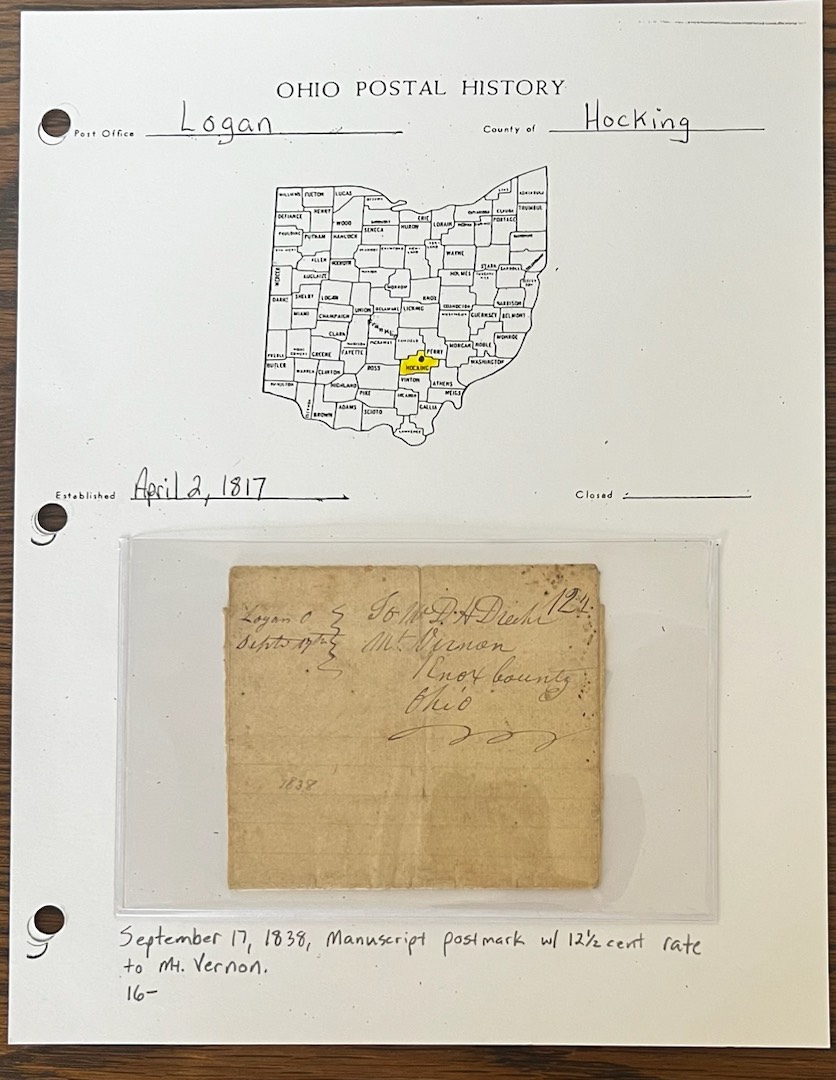 OHIO POSTAL HISTORY
Post Office Logan County of Hocking
WILLIAMS FULTON LUCAS
DEFIANCE HENRY WOOD SENECA ERIE HURON LORAIN PORTAGE TRUMBULL
PAULDING PUTNAM HANCOCK
ALLEN WAYNE STARK CARROLL
MERCER AUGLAIZE HOLMES
DARKE SHELBY LOGAN MORROW KNOX COSHOCTON HARRISON
MIAMI CHAMPAIGN UNION DELAWARE LICKING GUERNSEY BELMONT
CLARK FRANKLIN
PREBLE GREENE FAYETTE PERRY MORGAN NOBLE MONROE
BUTLER WARREN CLINTON ROSS HOCKING WASHINGTON
HAMILTON HIGHLAND PIKE VINTON ATHENS MEIGS
BROWN ADAMS SCIOTO GALLIA
LAWRENCE
Established April 2, 1817 Closed
Logan O To Mr D. H 12½
Septr 17th Mt. Vernon
Knox County
Ohio
1838
September 17, 1838, Manuscript postmark w/ 12½ cent rate
to Mt. Vernon.
16-